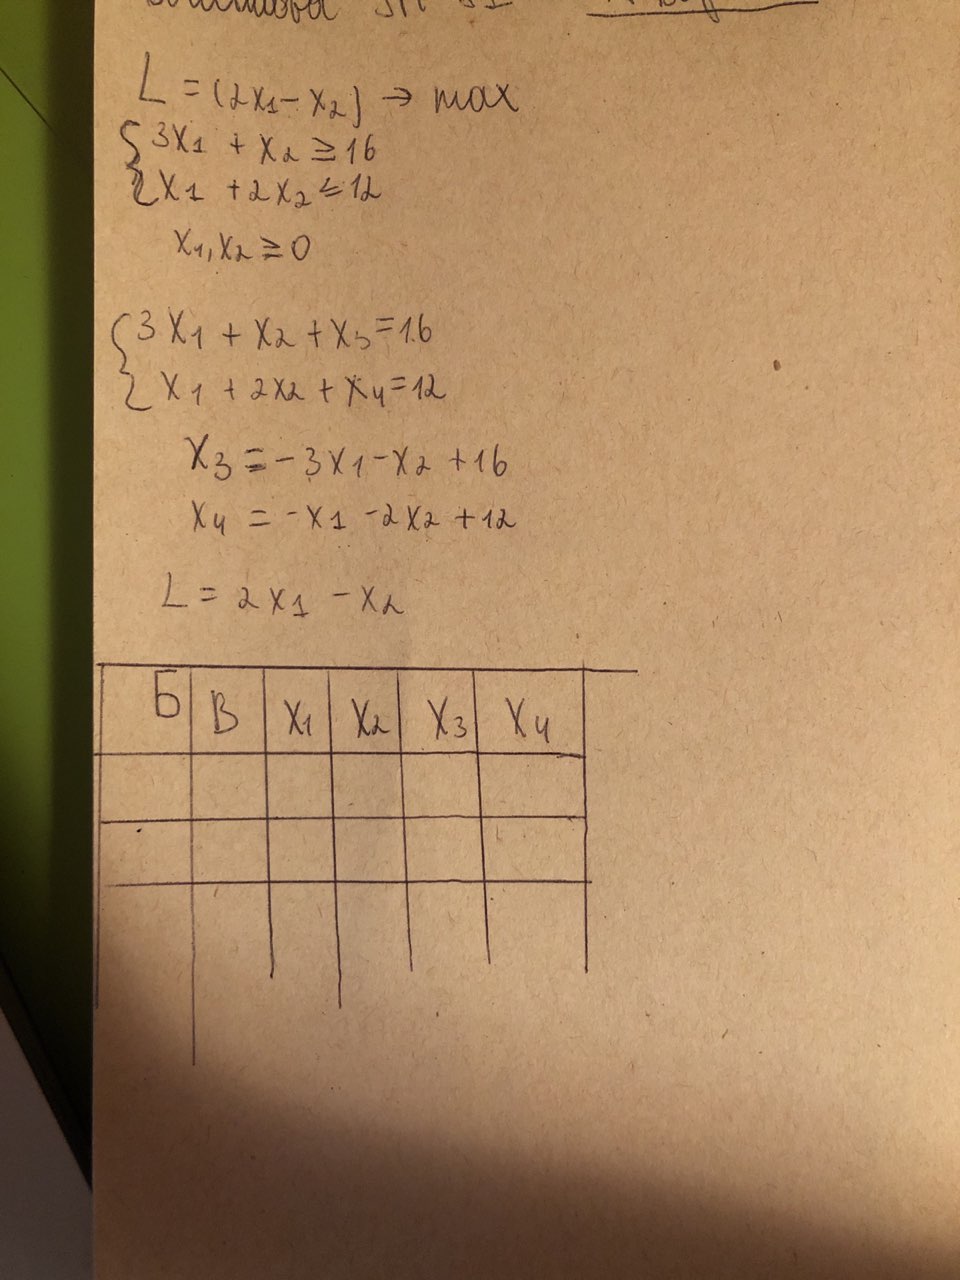 L = (2x₁ - x₂) → max
{ 3x₁ + x₂ ≥ 16
x₁ + 2x₂ ≤ 12
x₁, x₂ ≥ 0
{ 3x₁ + x₂ + x₃ = 16
x₁ + 2x₂ + x₄ = 12
x₃ = -3x₁ - x₂ + 16
x₄ = -x₁ - 2x₂ + 12
L = 2x₁ - x₂
Б B x₁ x₂ x₃ x₄